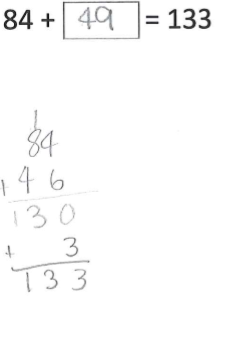 84 + 49 = 133
1
84
+ 46
130
+ 3
133